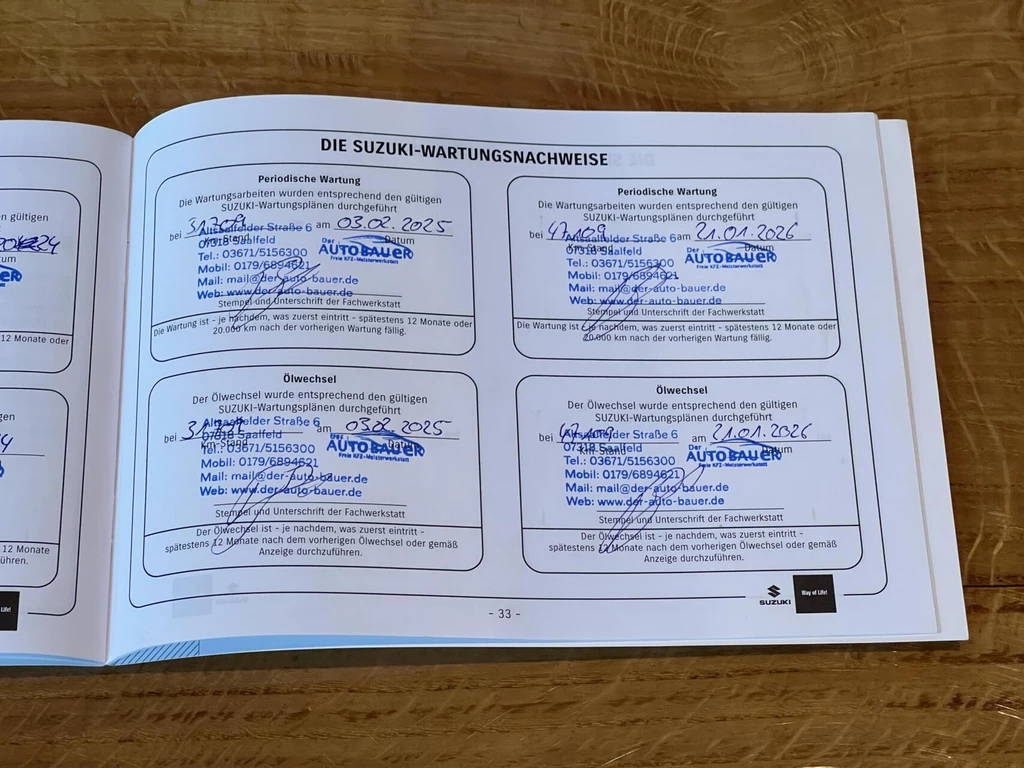 gültigen
12 Monate oder
gen
12 Monate
ühren.
DIE SUZUKI-WARTUNGSNACHWEISE
Periodische Wartung
Die Wartungsarbeiten wurden entsprechend den gültigen
SUZUKI-Wartungsplänen durchgeführt
bei 31.709 am 03.02.2025
Altsaalfelder Straße 6
07318 Saalfeld
km-Stand
Datum
Tel.: 03671/5156300
Mobil: 0179/6894621
Mail: mail@der-auto-bauer.de
Web: www.der-auto-bauer.de
Der
AUTOBAUER
Freie KFZ-Meisterwerkstatt
Stempel und Unterschrift der Fachwerkstatt
Die Wartung ist - je nachdem, was zuerst eintritt - spätestens 12 Monate oder
20.000 km nach der vorherigen Wartung fällig.
Periodische Wartung
Die Wartungsarbeiten wurden entsprechend den gültigen
SUZUKI-Wartungsplänen durchgeführt
bei 47.109 am 21.01.2026
Altsaalfelder Straße 6
07318 Saalfeld
km-Stand
Datum
Tel.: 03671/5156300
Mobil: 0179/6894621
Mail: mail@der-auto-bauer.de
Web: www.der-auto-bauer.de
Der
AUTOBAUER
Freie KFZ-Meisterwerkstatt
Stempel und Unterschrift der Fachwerkstatt
Die Wartung ist - je nachdem, was zuerst eintritt - spätestens 12 Monate oder
20.000 km nach der vorherigen Wartung fällig.
Ölwechsel
Der Ölwechsel wurde entsprechend den gültigen
SUZUKI-Wartungsplänen durchgeführt
bei am 03.02.2025
Altsaalfelder Straße 6
07318 Saalfeld
km-Stand
Datum
Tel.: 03671/5156300
Mobil: 0179/6894621
Mail: mail@der-auto-bauer.de
Web: www.der-auto-bauer.de
Der
AUTOBAUER
Freie KFZ-Meisterwerkstatt
Stempel und Unterschrift der Fachwerkstatt
Der Ölwechsel ist - je nachdem, was zuerst eintritt -
spätestens 12 Monate nach dem vorherigen Ölwechsel oder gemäß
Anzeige durchzuführen.
Ölwechsel
Der Ölwechsel wurde entsprechend den gültigen
SUZUKI-Wartungsplänen durchgeführt
bei 47.109 am 21.01.2026
Altsaalfelder Straße 6
07318 Saalfeld
km-Stand
Datum
Tel.: 03671/5156300
Mobil: 0179/6894621
Mail: mail@der-auto-bauer.de
Web: www.der-auto-bauer.de
Der
AUTOBAUER
Freie KFZ-Meisterwerkstatt
Stempel und Unterschrift der Fachwerkstatt
Der Ölwechsel ist - je nachdem, was zuerst eintritt -
spätestens 12 Monate nach dem vorherigen Ölwechsel oder gemäß
Anzeige durchzuführen.
SUZUKI
Way of Life!
- 33 -